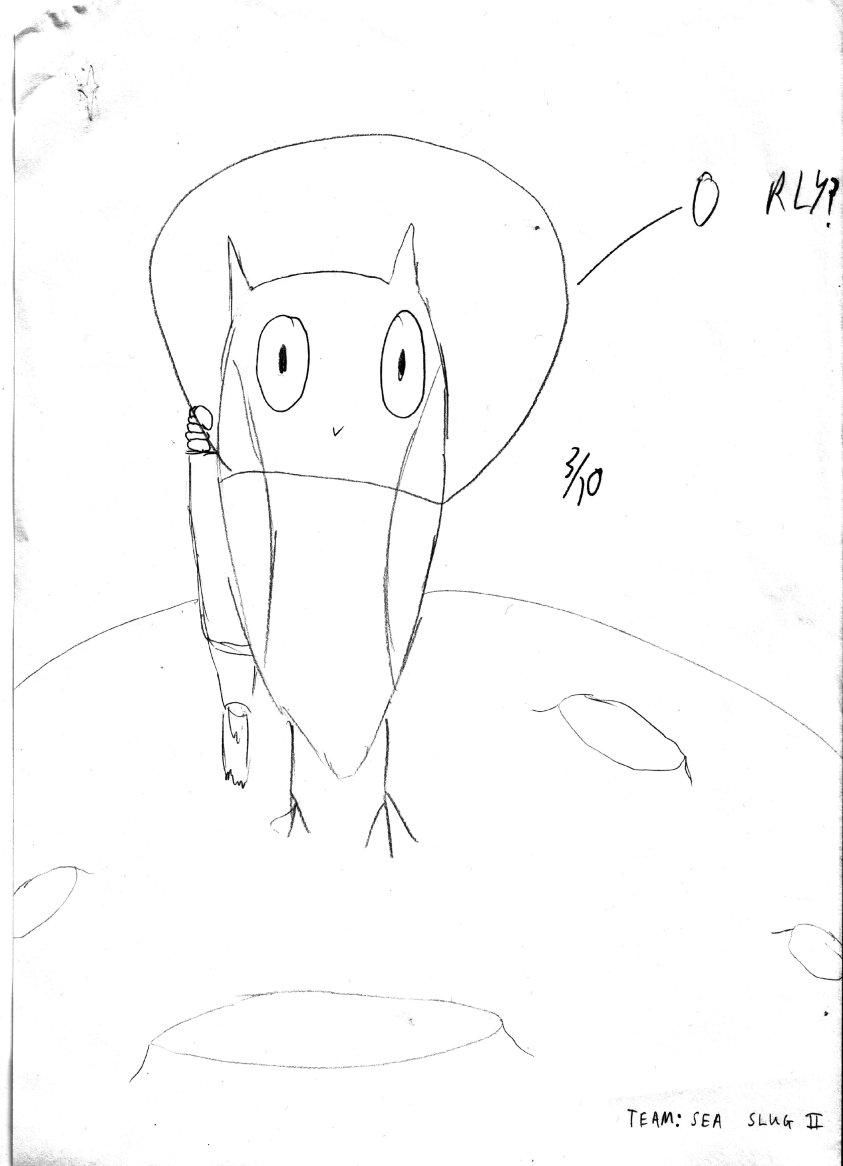 O RLY?
3/10
TEAM: SEA SLUG II